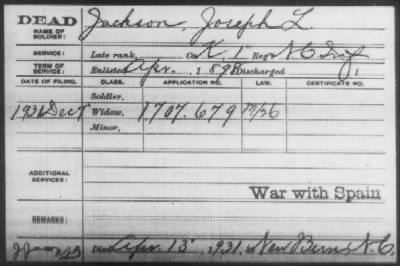 DEAD
NAME OF SOLDIER: Jackson, Joseph L.
SERVICE: Late rank, Co. K, 1" Reg't N C Inf
TERM OF SERVICE: Enlisted Apr., 1898 Discharged , 1
DATE OF FILING. CLASS. APPLICATION NO. LAW. CERTIFICATE NO.
Soldier,
1931 Dec 7 Widow, 1707.679
Minor,
ADDITIONAL SERVICES:
War with Spain
REMARKS:
Died Apr. 13, 1931, in New Bern, N.C.